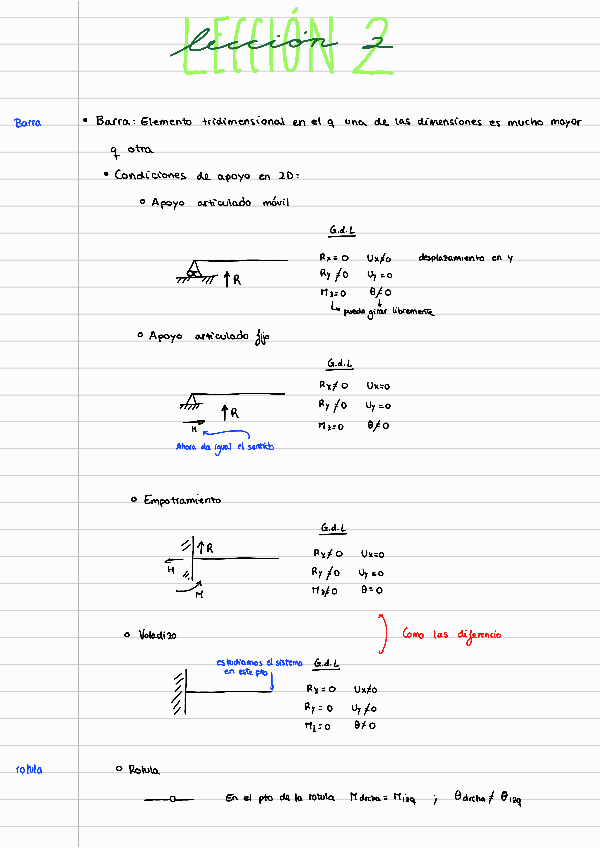 LECCIÓN 2
lección 2
Barra
• Barra: Elemento tridimensional en el q una de las dimensiones es mucho mayor
q otra
• Condiciones de apoyo en 2D:
o Apoyo articulado móvil
G.d.L
Rx=0 Ux≠0 desplazamiento en y
Ry≠0 Uy=0
R
Mz=0 θ≠0
↳ puede girar libremente
o Apoyo articulado fijo
G.d.L
Rx≠0 Ux=0
Ry≠0 Uy=0
R
H
Mz=0 θ≠0
Ahora da igual el sentido
o Empotramiento
G.d.L
R
Rx≠0 Ux=0
H
Ry≠0 Uy=0
Mz≠0 θ=0
M
o Voladizo
Como las diferencio
estudiamos el sistema
en este pto
G.d.L
Rx=0 Ux≠0
Ry=0 Uy≠0
Mz=0 θ≠0
rotula
o Rotula
En el pto de la rotula Mdrcha = Mizq ; θdrcha ≠ θizq